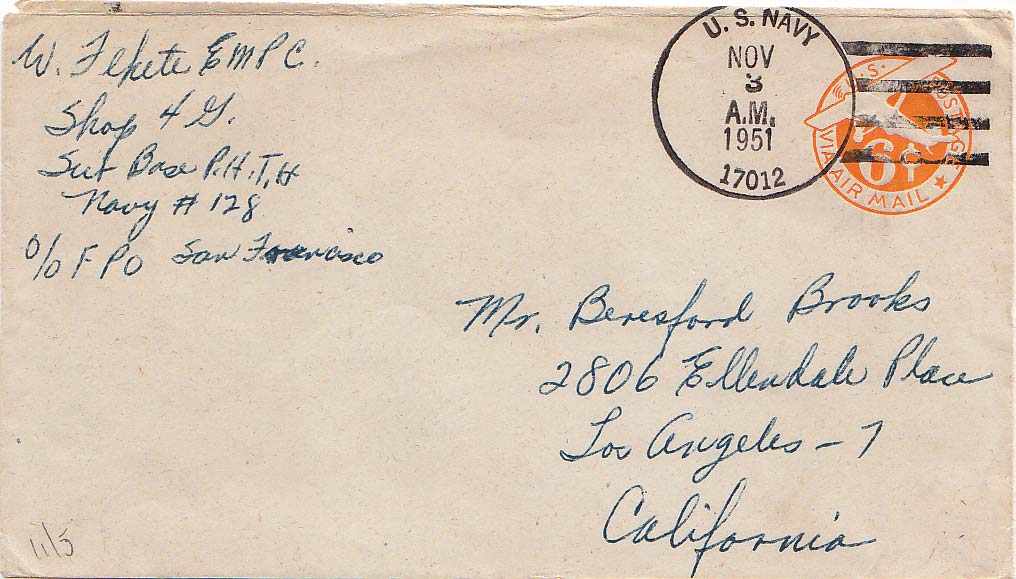 W. Fekete EMPC.
Shop 4 G.
Sub Base P.H.T.H
Navy # 128
c/o F P O San Francisco
U. S. NAVY
NOV
3
A.M.
1951
17012
U.S. POSTAGE
6¢
VIA AIR MAIL
Mr. Beresford Brooks
2806 Ellendale Place
Los Angeles - 7
California
11/5